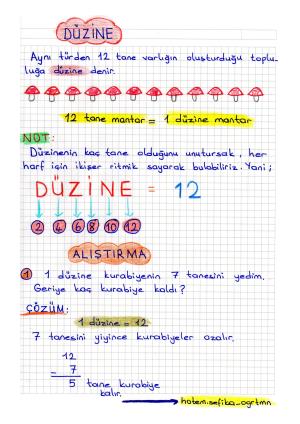 DÜZİNE
Aynı türden 12 tane varlığın oluşturduğu toplu-
luğa düzine denir.
12 tane mantar = 1 düzine mantar
NOT:
Düzinenin kaç tane olduğunu unutursak, her
harf için ikişer ritmik sayarak bulabiliriz. Yani;
DÜZİNE = 12
2 4 6 8 10 12
ALIŞTIRMA
1 1 düzine kurabiyenin 7 tanesini yedim.
Geriye kaç kurabiye kaldı?
ÇÖZÜM:
1 düzine = 12
7 tanesini yiyince kurabiyeler azalır.
12
- 7
5 tane kurabiye
kalır.
hatem.sefika_ogrtmn